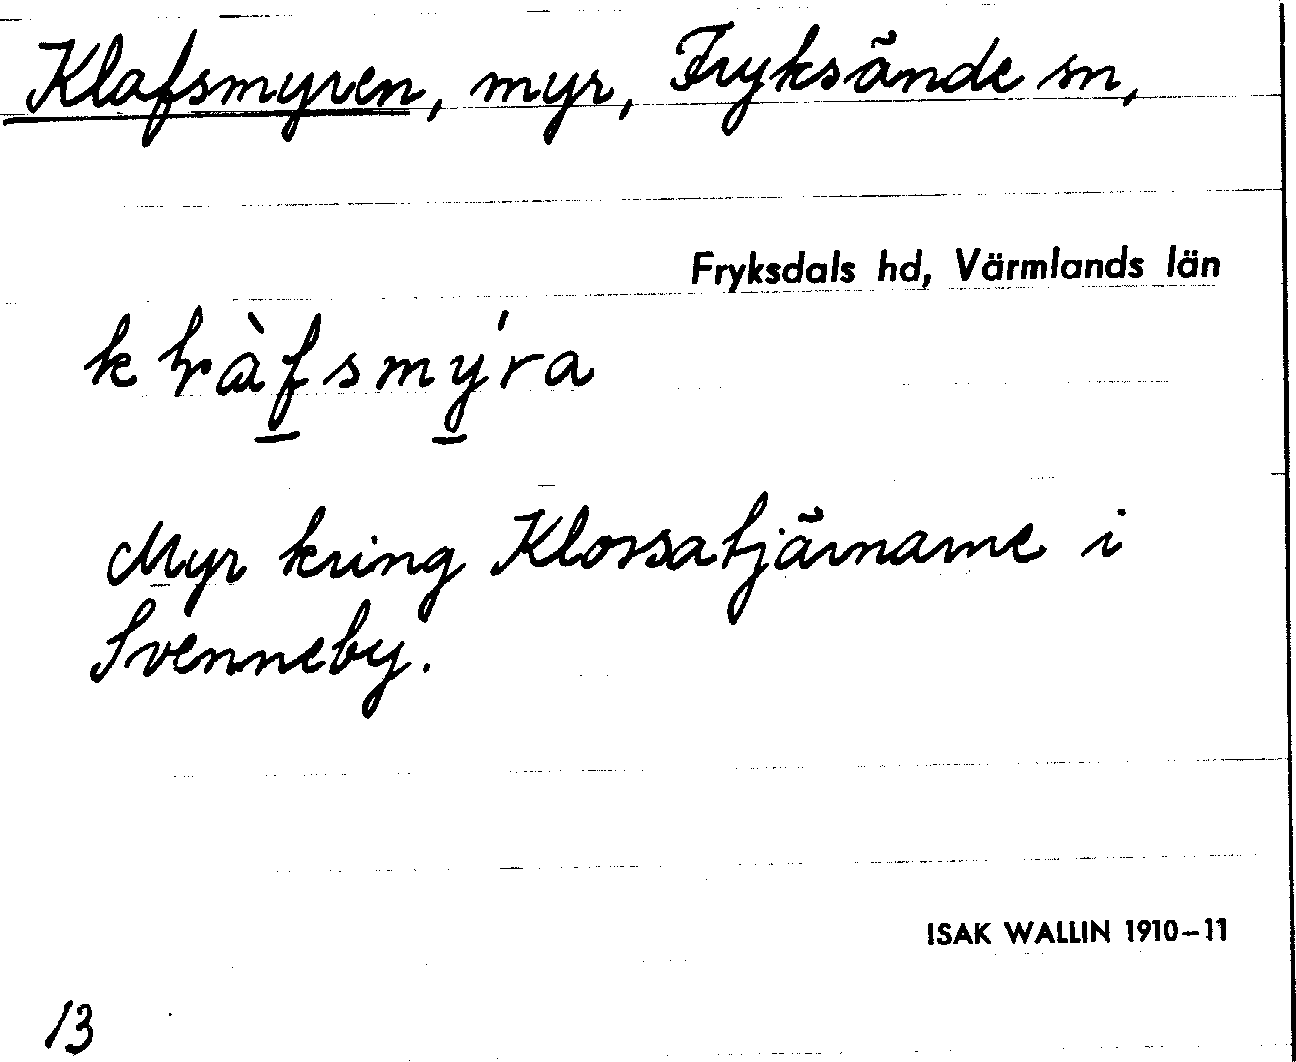 Klafsmyren, myr, Fryksände sn,
Fryksdals hd, Värmlands län
Myr kring Klossatjärnarne i
Svenneby.
ISAK WALLIN 1910-11
13